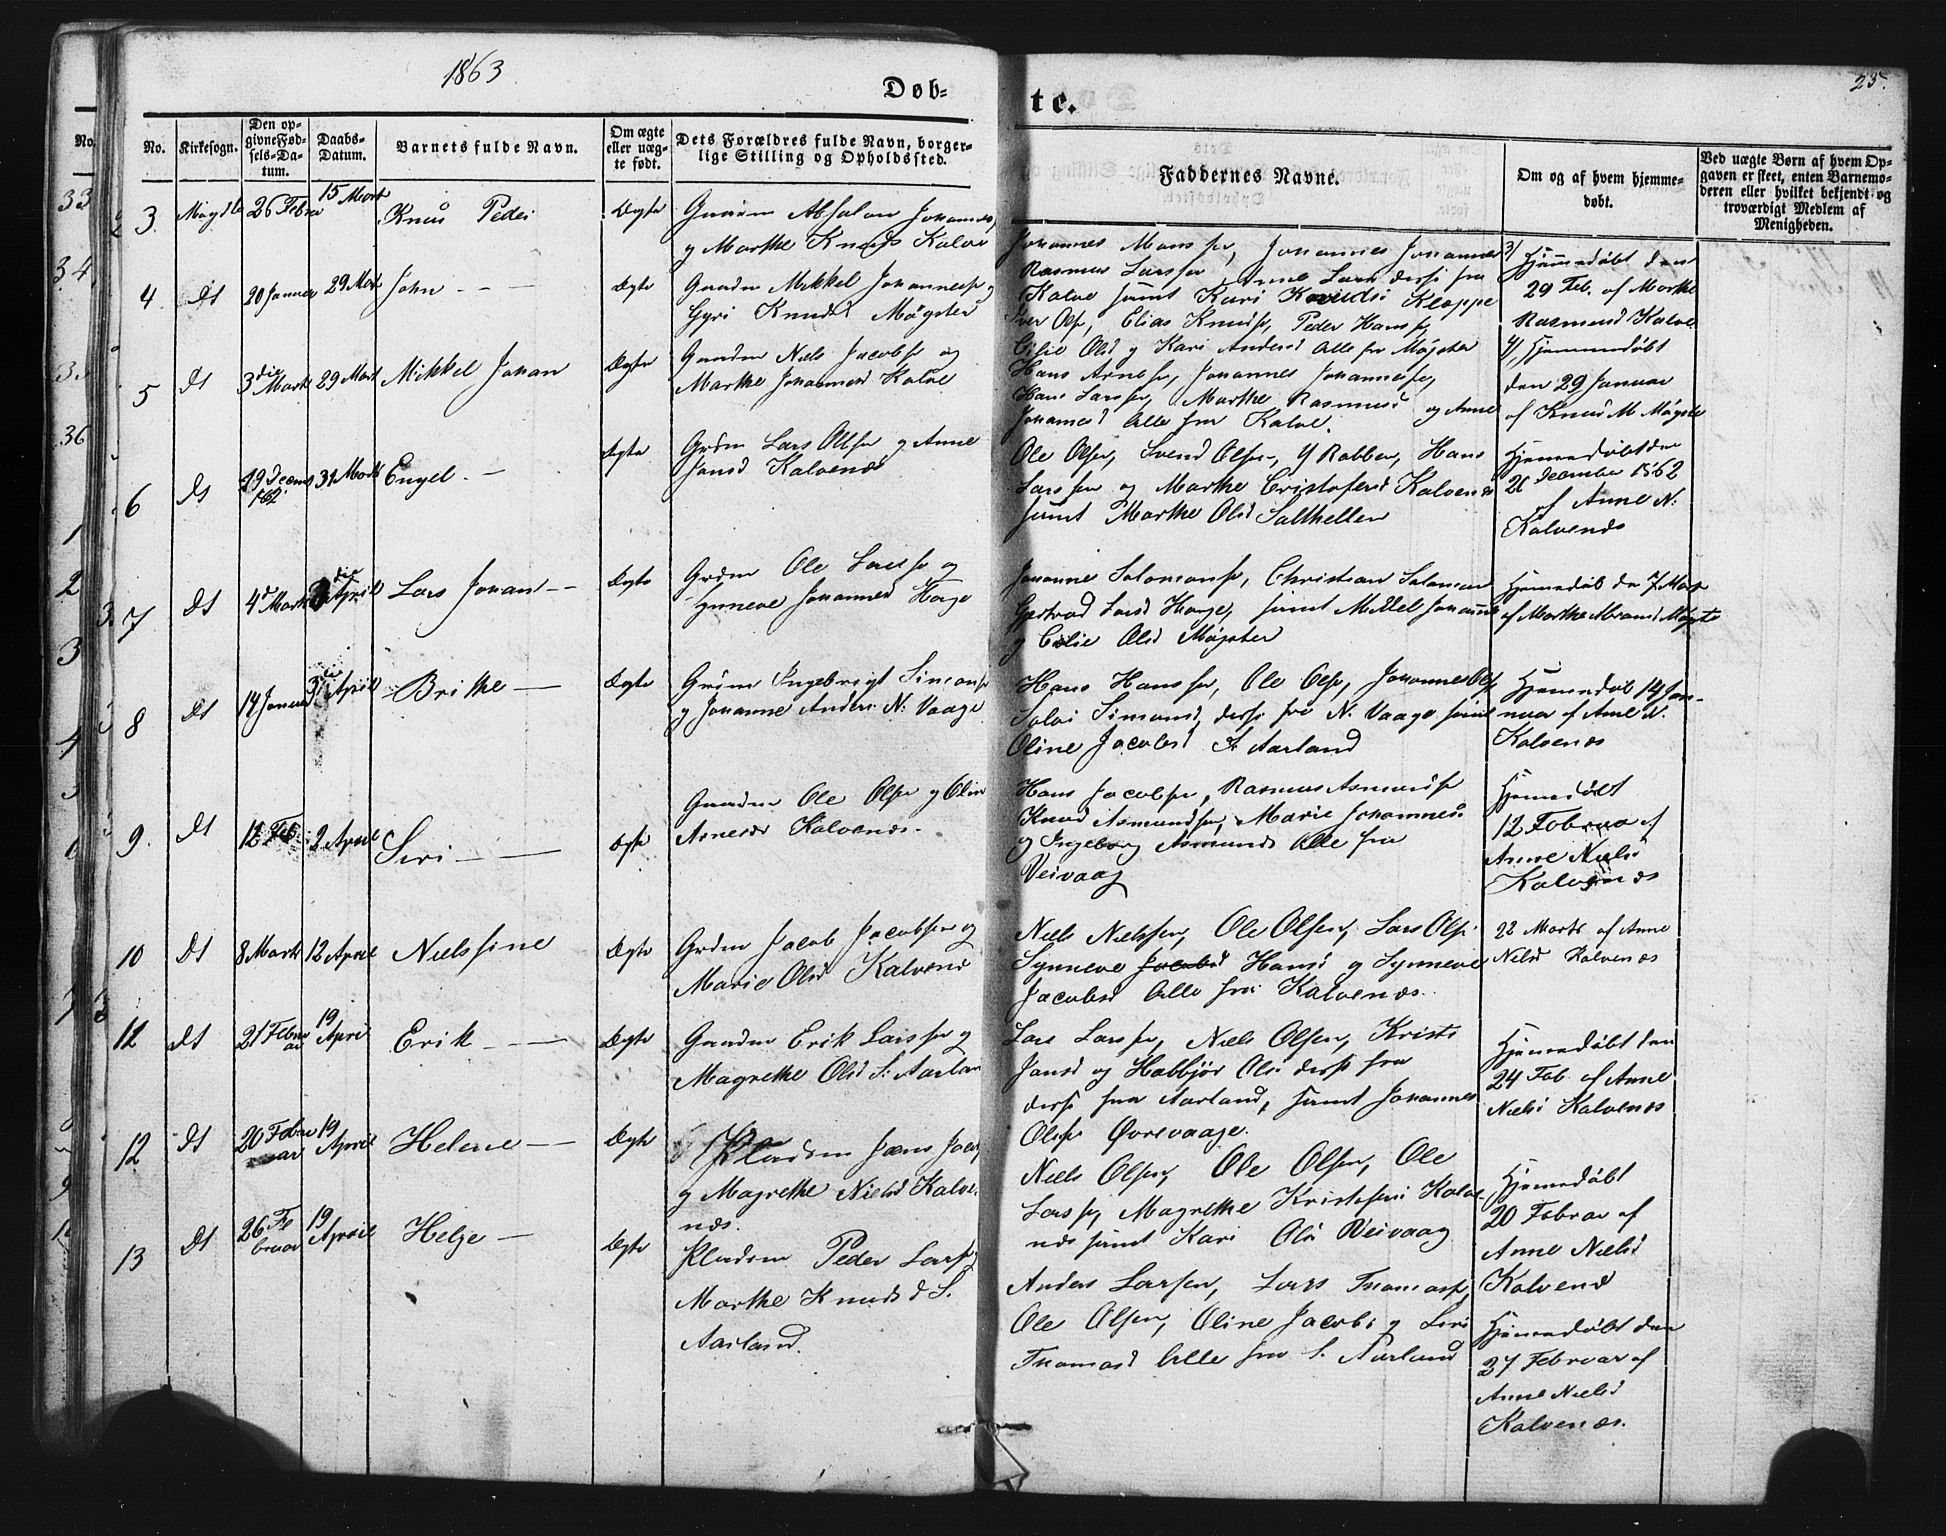 1863
25.
Døb-
te.
No.
No.
Kirkesogn.
Den op-
givne Fød-
sels-Da-
tum.
Daabs-
Datum.
Barnets fulde Navn.
Om ægte
eller uæg-
te født.
Dets Forældres fulde Navn, borger-
lige Stilling og Opholdssted.
Faddernes Navne.
Om og af hvem hjemme-
døbt.
Ved uægte Børn af hvem Op-
gaven er skeet, enten Barnemo-
deren eller hvilket bekjendt og
troværdigt Medlem af
Menigheden.
33
34
36
1
2
3
4
3.
26 Febr
15 Mart
Ægte
Gaardm Absalon Johannes
g Marthe Knuds Kalve
Johannes Monsse, Johannes Johannes
Rasmus Larsse,
Kalve samt Kari Knudsd Kleppe
3/ Hjemmedøbt den
29 Feb. af Marthe
Rasmusd Kalve
4.
dt
20 Januar
29 Mart
John - - -
Ægte
Gaardm Mikkel Johannesse g
Gyri Knudsd Møgster
Iver Olse, Elias Knudse, Peder Hansse,
Cisie Olsd g Kari Andersd Alle fra Møgster
4/ Hjemmedøbt
den 29 Januar
af Knud M Møgste
5
dt
3die Marts
29 Mart
Mikkel Johan
Ægte
Gaardm Niels Jacobse og
Marthe Johannesd Kalve
Hans Arnese, Johannes Johannesse,
Hans Larsse, Marthe Rasmusd og Anne
Johannesd Alle fra Kalve.
6
dt
29 Decem
162
31 Marts
Engel. -
Ægte
Grdm Lars Olsse g Anne
Jansd Kalvenæs
Ole Olse, Svend Olse, Y Rabben, Hans
Larssen og Marthe Cristofersd Kalvenæs
samt Marthe Olsd Salthellen
Hjemmedøbt den
December 1862
af Anne N.
Kalvenæs
7
dt
4d Mart
3die April
Lars Johan - -
Ægte
Grdm Ole Larsse og
Synneve Johannesd Horge
Johanne Salomonse, Christian Salomon
Gjertrud Larsd Horge, samt Mikkel Johannes
g Cisilie Olsd Møgster
Hjemedøb de 7 Mart
af Marthe Abramsd Møgste
8
dt
14 Januar
3die April
Brithe -
Ægte
Grdm Ingebrigt Simonse
g Johanne Anders. N: Vaage
Hans Hansse, Ole Olse, Johannes Ols
Salvi Simonsd, derss fra N. Vaage samt
Oline Jacobsd S. Aarland
Hjemedøb 14 Jan-
nuar af Anne N.
Kalvenæs
9.
dt
12 Feb
2 April
Siri - -
Ægte
Gaardm Ole Olse g Olin
Arnesdr Kalvenæs.
Hans Jacobse, Rasmus Asmundse
Knud Asmundse, Marie Johannes:
g Ingeborg Asmunds Alle fra
Veivaag
Hjemedøbt
12 Februa af
Anne Nielsd
Kalvenæs
10
dt
8 Marts
12 April
Nielssine
Ægte
Grdm Jacob Jacobsen og
Marie Olsd Kalvenæs
Niels Nielssen, Ole Olsen, Lars Olse
Synneve Jacobsd Hansd g Synneve
Jacobsd Alle fra Kalvenæs.
22 Marts af Anne
Nilsd Kalvenæs
11
dt
21 Februar
19
April
Erik - -
Ægte
Gaardm Erik Larsse g
Magrethe Olsd S. Aarlan
Lars Larsse, Niels Olsen, Kristi
Jansd og Habbjør Olsd derss fra
derss fra Aarland, samt Johannes
Olse Øvrevaage.
Hjemedøbt den
24 Feb. af Anne
Nielsd Kalvenæs
12
dt
20 Februar
19
April
Helene -
Ægte
Pladsm Jæns Jac
g Magrethe Nielsd Kalve-
næs.
Niels Olsen, Ole Olsen, Ole
Larsse, Magrethe Kristofersd Kalve
næs samt Kari Olsd Veivaag
Hjemedøbt
20 Februar af
Anne Nielsd
Kalvenæs
13
dt
26 Fe
bruar
19
April
Helge -
Ægte
Pladsm Peder Larse g
Marthe Knudsd S.
Aarland.
Anders Larsen, Lars Thomasse,
Ole Olsen, Oline Jacobs g Siri
Thomasd Alle fra S. Aarland
Hjemedøbt den
27 Februar af
Anne Nielsd
Kalvenæs.